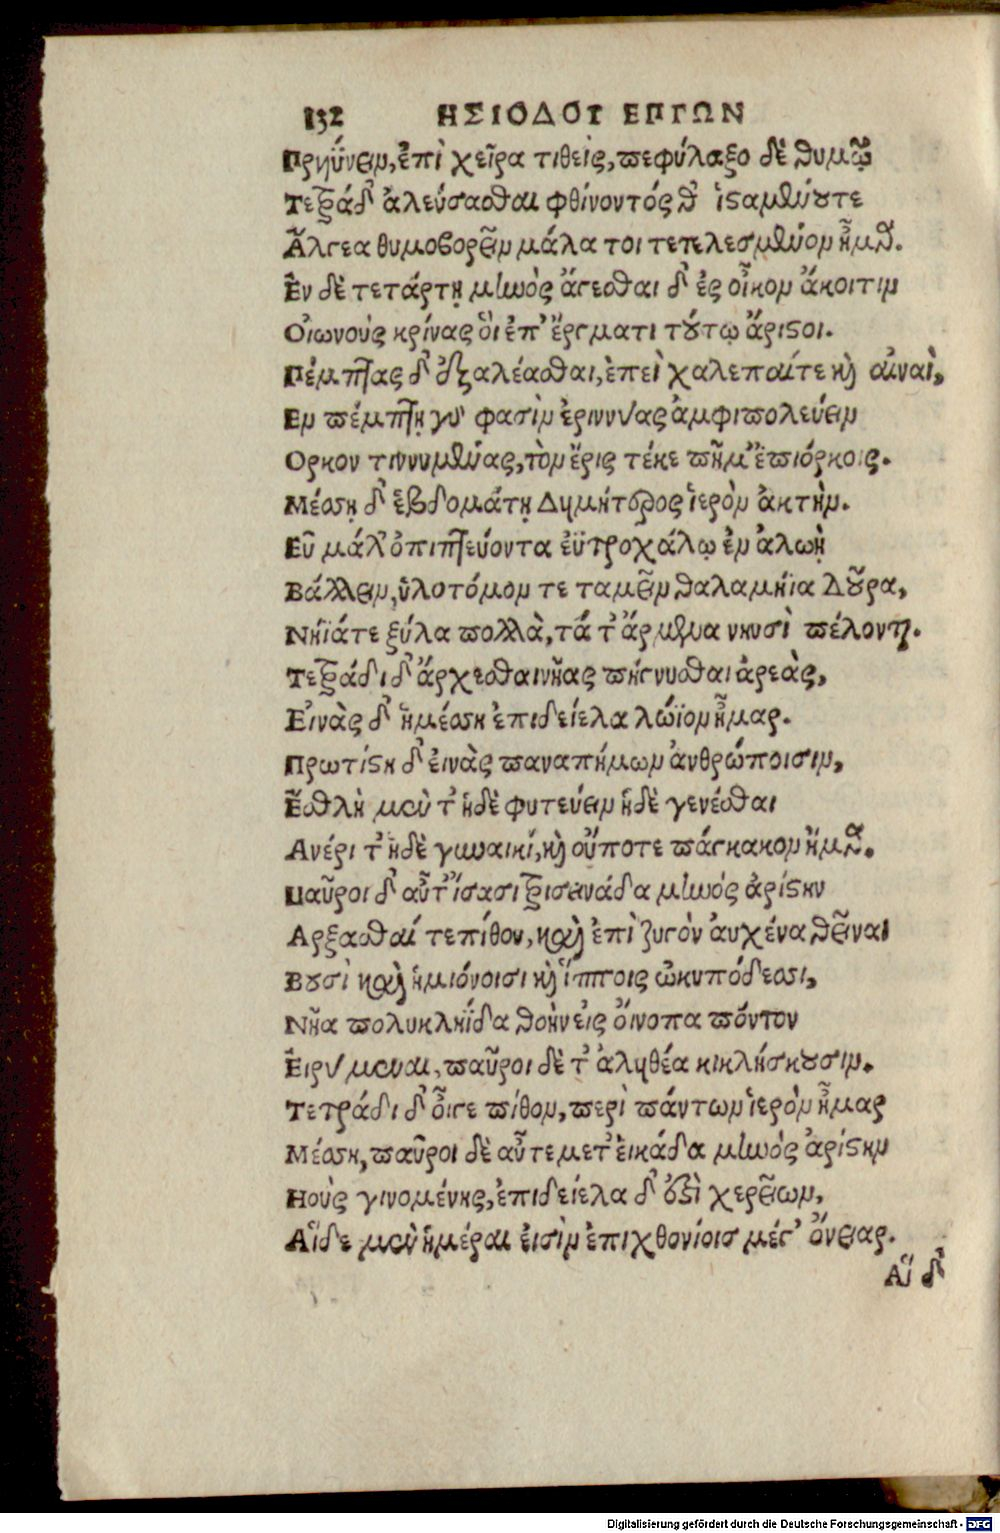 132 ΗΣΙΟΔΟΥ ΕΡΓΩΝ
Πρηΰνειν, ἐπὶ χεῖρα τιθείς, πεφύλαξο δὲ θυμῷ
Τετράδ᾽ ἀλεύσασθαι φθίνοντός θ᾽ ἱσταμένου τε
Ἄλγεα θυμοβορεῖν μάλα τοι τετελεσμένον ἦμαρ.
Ἐν δὲ τετάρτῃ μηνὸς ἄγεσθαι δ᾽ ἐς οἶκον ἄκοιτιν
Οἰωνοὺς κρίνας ὃι ἐπ᾽ ἔργματι τούτῳ ἄριστοι.
Πέμπτας δ᾽ ἐξαλέασθαι, ἐπεὶ χαλεπαί τε καὶ αἰναὶ,
Εν πέμπτῃ γὰρ φασὶν ἐριννύας ἀμφιπολεύειν
Ορκον τιννυμένας, τὸν ἔρις τέκε πῆμ᾽ ἐπιόρκοις.
Μέσσῃ δ᾽ ἑβδομάτῃ Δημήτερος ἱερὸν ἀκτὴν.
Εὖ μάλ᾽ ὀπιπτεύοντα ἐϋτροχάλῳ ἐν ἀλωῇ
Βάλλειν, ὑλοτόμον τε ταμεῖν θαλαμήϊα δοῦρα,
Νήϊά τε ξύλα πολλὰ, τά τ᾽ ἄρμενα νηυσὶ πέλονται.
Τετράδι δ᾽ ἄρχεσθαι νῆας πήγνυσθαι ἀρεὰς,
Εἰνὰς δ᾽ ἡ μέσση ἐπιδείελα λώϊον ἦμαρ.
Πρωτίστη δ᾽ εἰνὰς παναπήμων ἀνθρώποισιν,
Ἔσθλὴ μὲν τ᾽ ἠδὲ φυτεύειν ἠδὲ γενέσθαι
Ανέρι τ᾽ ἠδὲ γυναικί, καὶ οὔποτε πάγκακον ἦμαρ.
Παῦροι δ᾽ αὖτ᾽ ἴσασι τρισεινάδα μηνός ἀρίστην
Αρξασθαί τε πίθου, καὶ ἐπὶ ζυγόν ἀυχένα θεῖναι
Βουσὶ καὶ ἡμιόνοισι καὶ ἵπποις ὠκυπόδεσσι,
Νῆα πολυκληΐδα θοὴν εἰς ὄινοπα πόντον
Ἐιρύμεναι, παῦροι δὲ τ᾽ ἀληθέα κικλήσκουσιν.
Τετράδι δ᾽ ὄιγε πίθον, περὶ πάντων ἱερὸν ἦμαρ
Μέσση, παῦροι δὲ αὖτε μετ᾽ ἐικάδα μηνός ἀρίστην
Ηοὺς γινομένης, ἐπιδείελα δ᾽ ἐστὶ χερείων,
Αἵδε μὲν ἡμέραι ἐισὶν ἐπιχθονίοισ μέγ᾽ ὄνειαρ.
Αἵ δ᾽
Digitalisierung gefördert durch die Deutsche Forschungsgemeinschaft - DFG